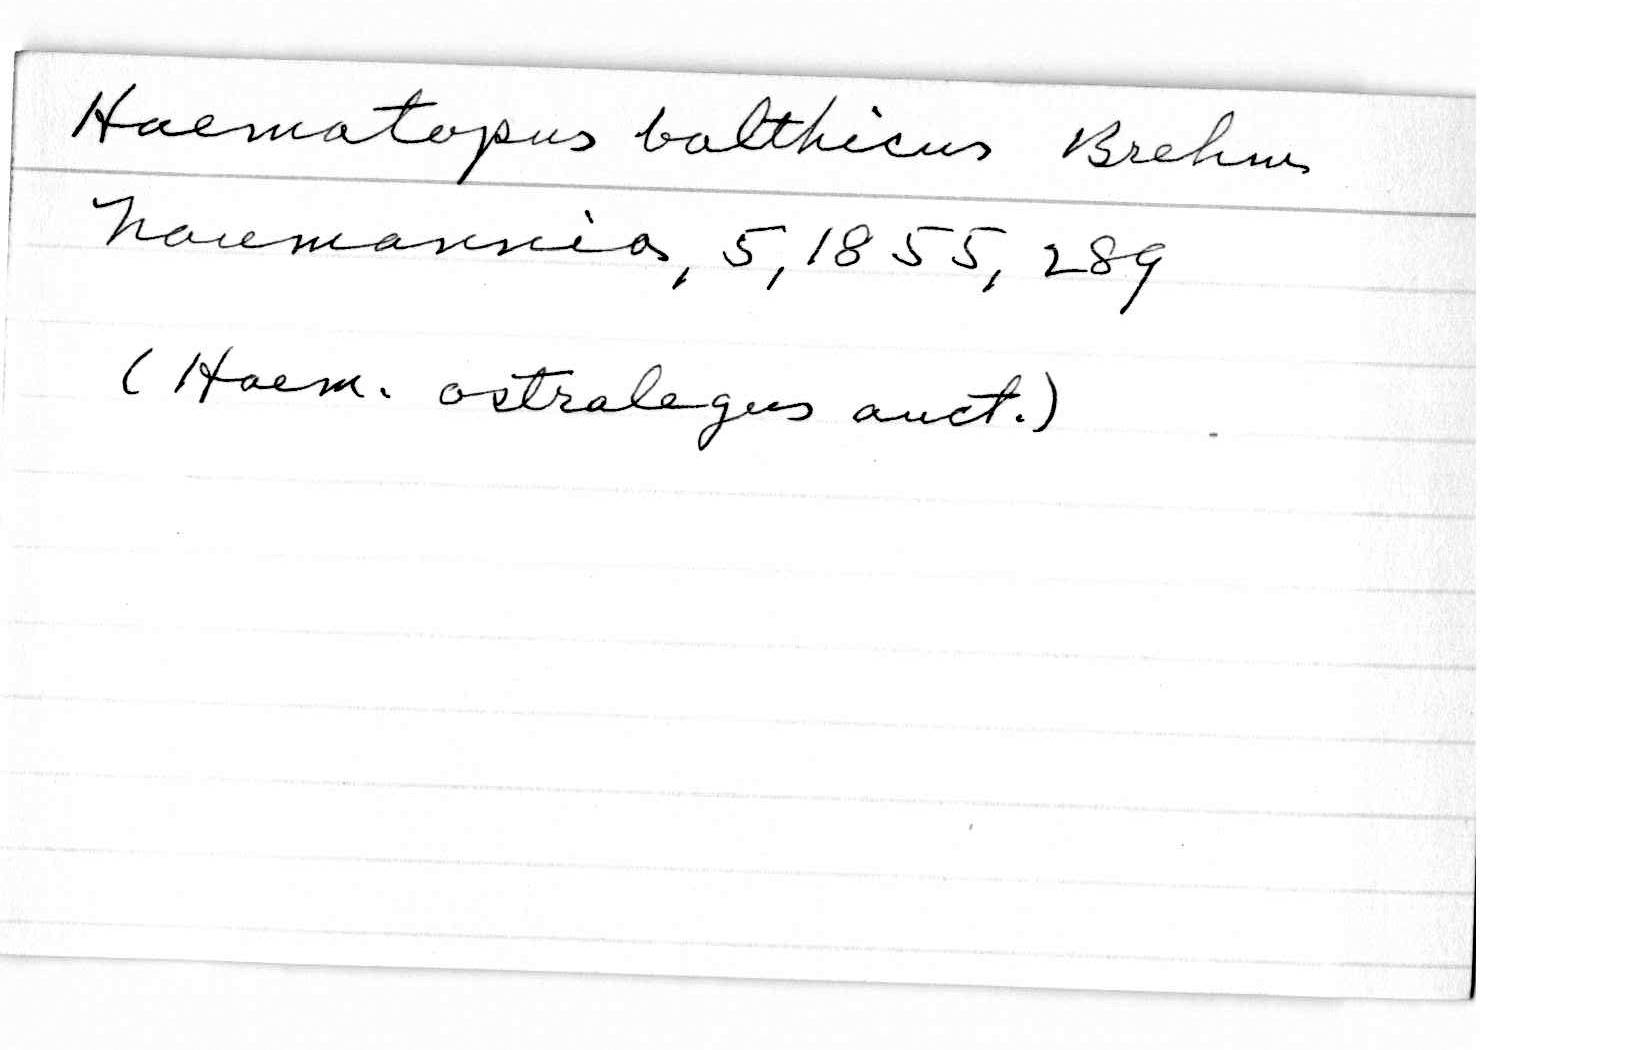 Haematopus balthicus Brehm
Naumannia, 5, 1855, 289
(Haem. ostralegus auct.)